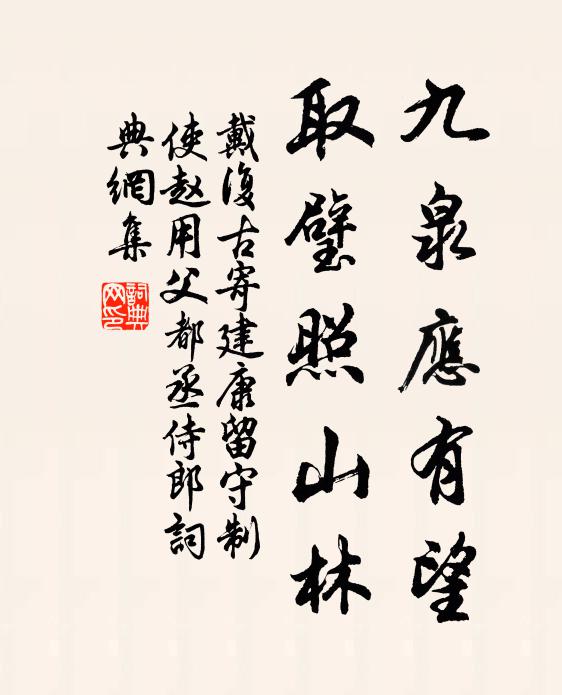 九泉應有望
取璧照山林
戴復古寄建康留守制
使赵用父都丞侍郎詞
典網集
詞典网印